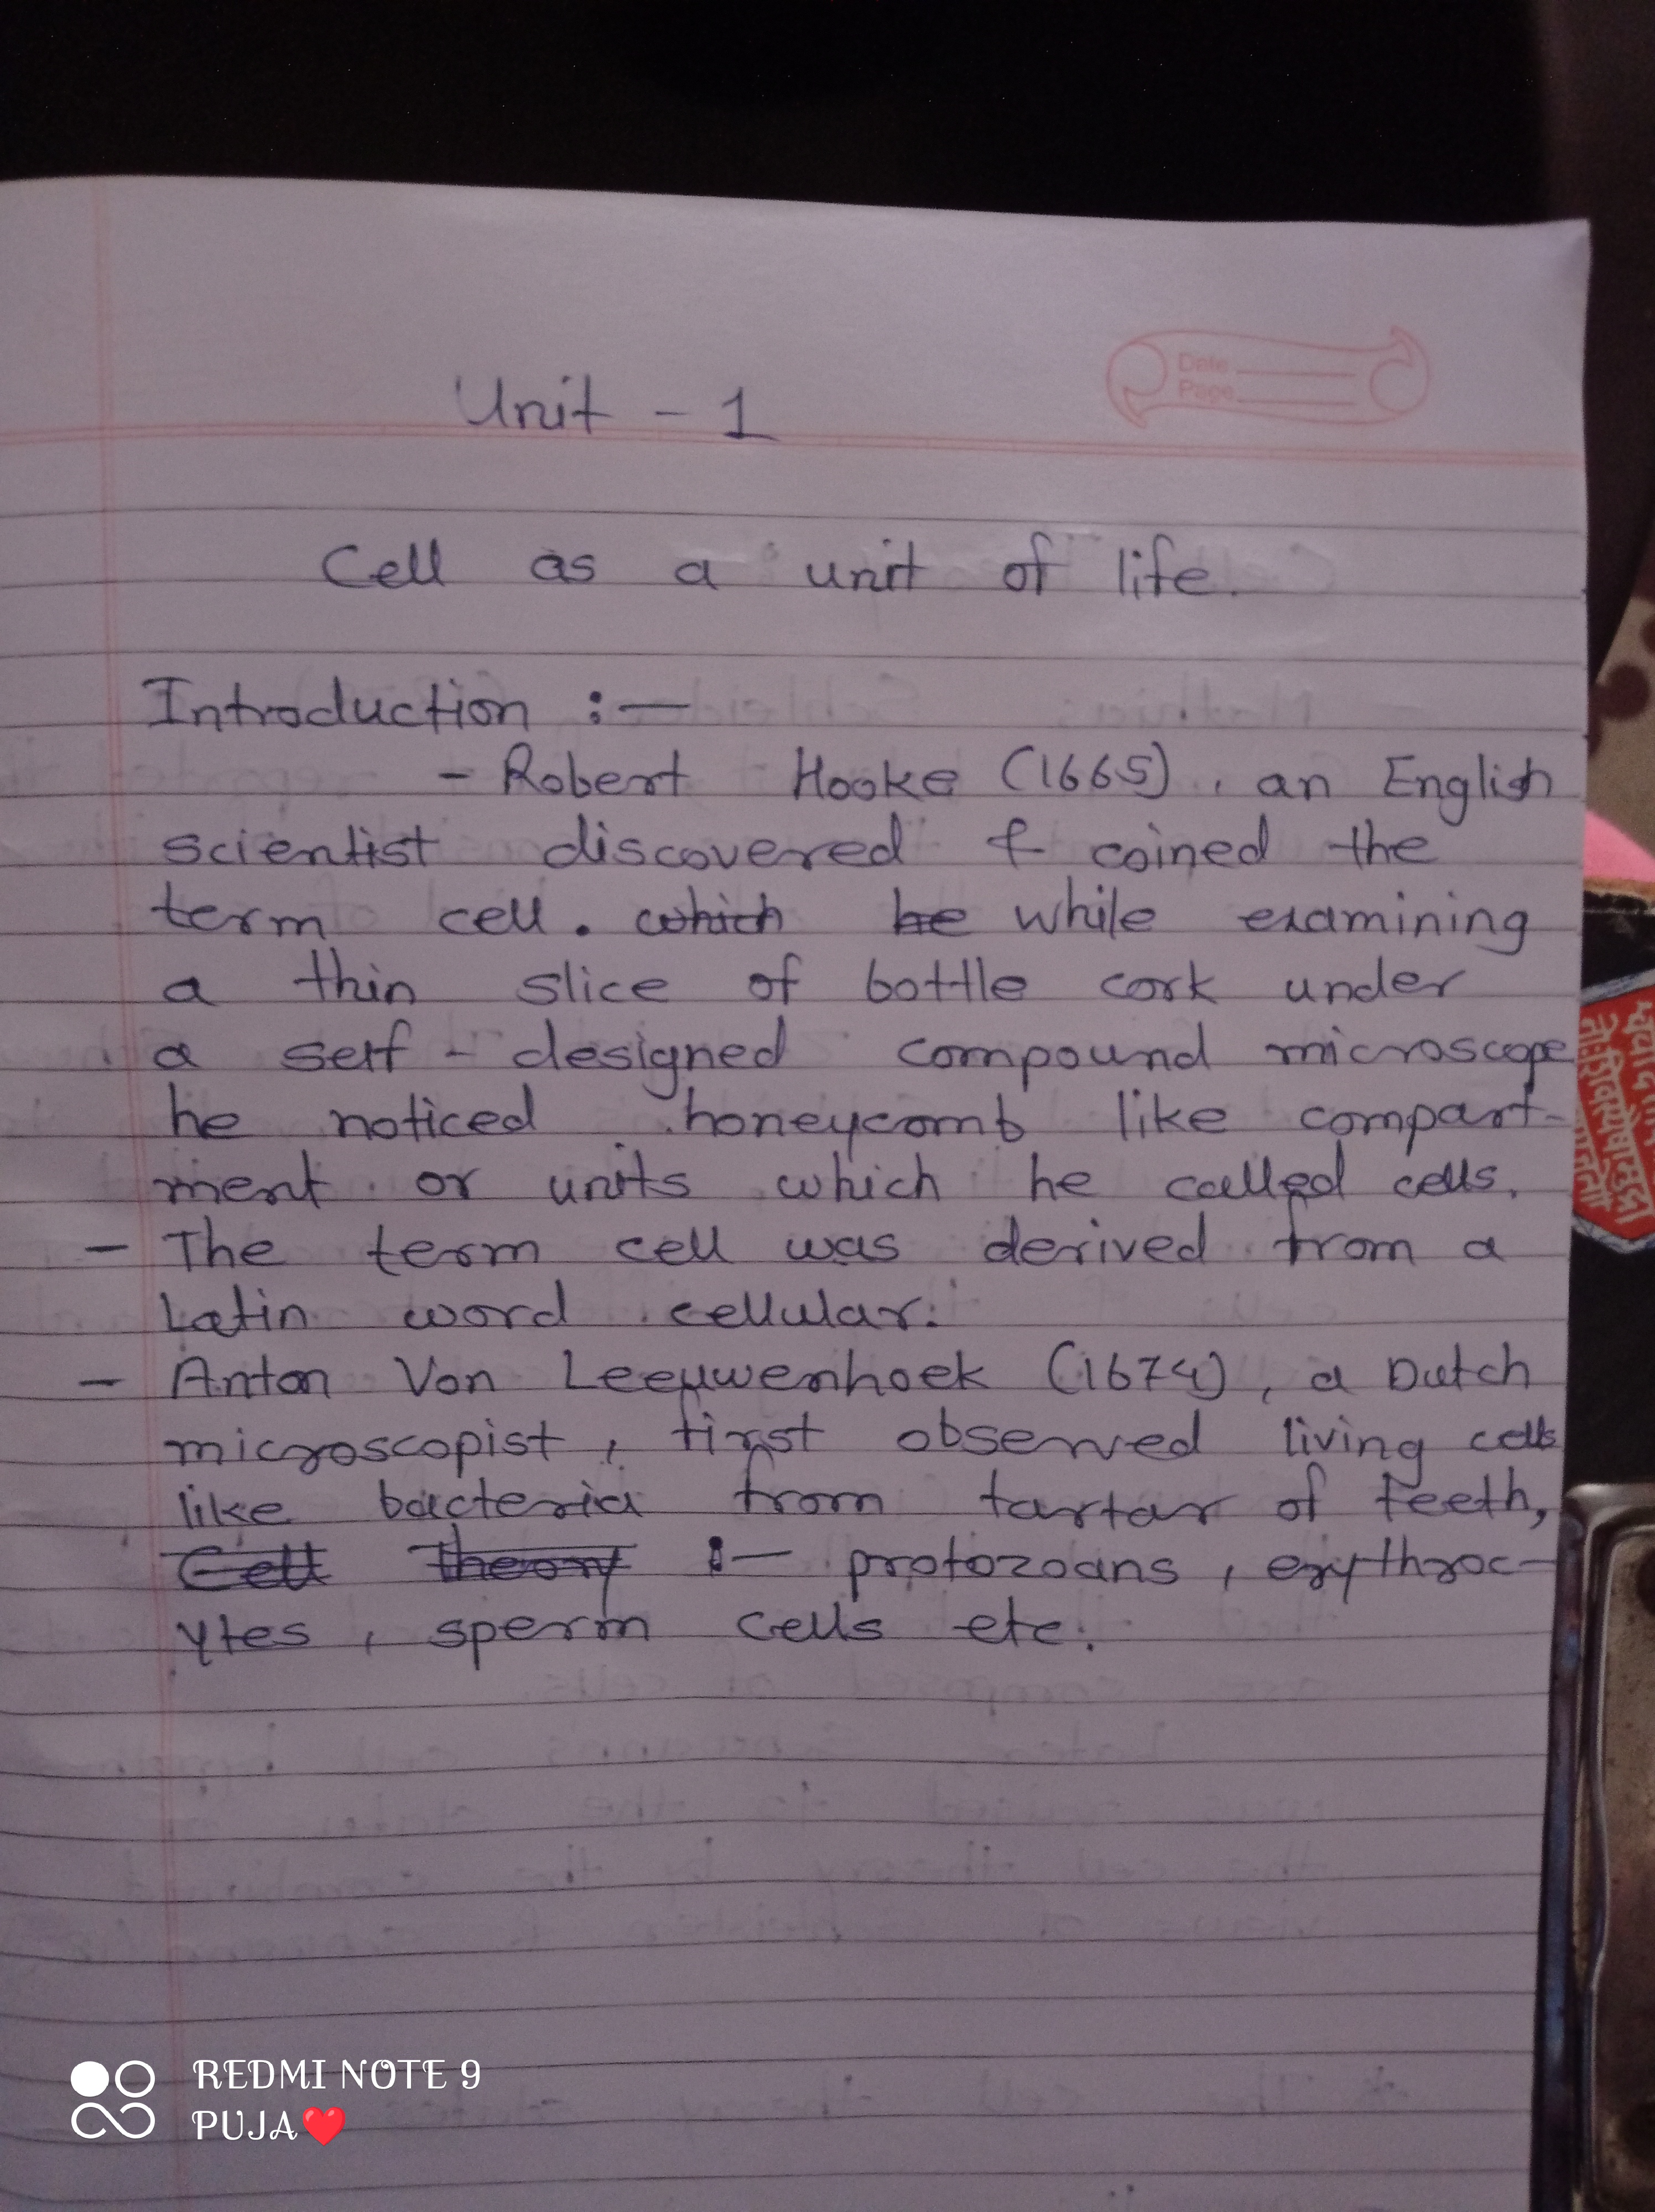 Date
Page
Unit - 1
Cell as a unit of life.
Introduction :-
- Robert Hooke (1665), an English
scientist discovered & coined the
term cell. which he while examining
a thin slice of bottle cork under
a self - designed compound microscope
he noticed honeycomb like compart-
ment or units which he called cells.
- The term cell was derived from a
Latin word cellular.
- Anton Von Leeuwenhoek (1674), a Dutch
microscopist, first observed living cells
like bacteria from tartar of teeth,
Cell Theory :- protozoans, erythroc-
ytes, sperm cells etc.
REDMI NOTE 9
PUJA❤️